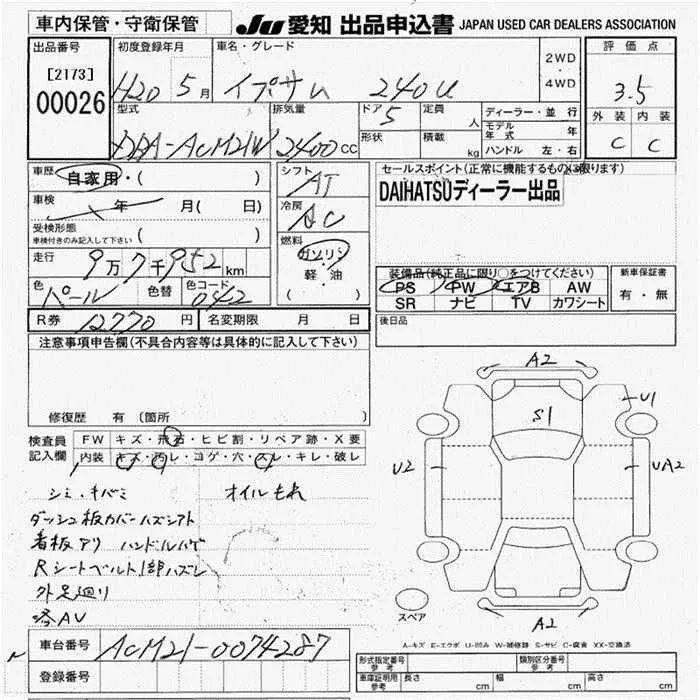 車内保管・守衛保管
JU 愛知 出品申込書 JAPAN USED CAR DEALERS ASSOCIATION
出品番号 初度登録年月 車名・グレード 2WD・4WD 評価点
[2173]
00026 H20 5月 イプサム 240u 3.5
型式 排気量 ドア 5 定員 人 ディーラー・並行 外装 内装
DBA-ACM21W 2400cc 形状 積載 kg モデル年式 年 C C
ハンドル 左・右
車歴 自家用・( ) シフト AT セールスポイント(正常に機能するもの×3限ります)
DAIHATSUディーラー出品
車検 年 月( 日) 冷房 AC
受検形態
車検付きのみ記入して下さい ( )
走行 9万7千952km 燃料 ガソリン 装備品(純正品に限り○をつけてください) 新車保証書
軽・油 PS PW エアB AW 有・無
色 パール 色替 色コード 042 ( ) SR ナビ TV カワシート
R券 12770円 名変期限 月 日 後日品
注意事項申告欄(不具合内容等は具体的に記入して下さい)
修復歴 有 (箇所
検査員記入欄 FW キズ・飛石・ヒビ割・リペア跡・X要
内装 キズ・汚レ・コゲ・穴・スレ・キレ・破レ
シミ・キバミ オイルもれ
ダッシュ板カバーハズシアト
看板アリ ハンドルハゲ
Rシートベルト1部ハズレ
外足廻り
済AV
A2
U1
S1
U2
UA2
スペア
A2
A-キズ E-エクボ U-凹み W-補修跡 S-サビ C-腐食 XX-交換済
車台番号 ACM21-0074287
登録番号
形式指定番号 参考 類別区分番号 参考
車庫証明用 参考 長さ cm 幅 cm 高さ cm